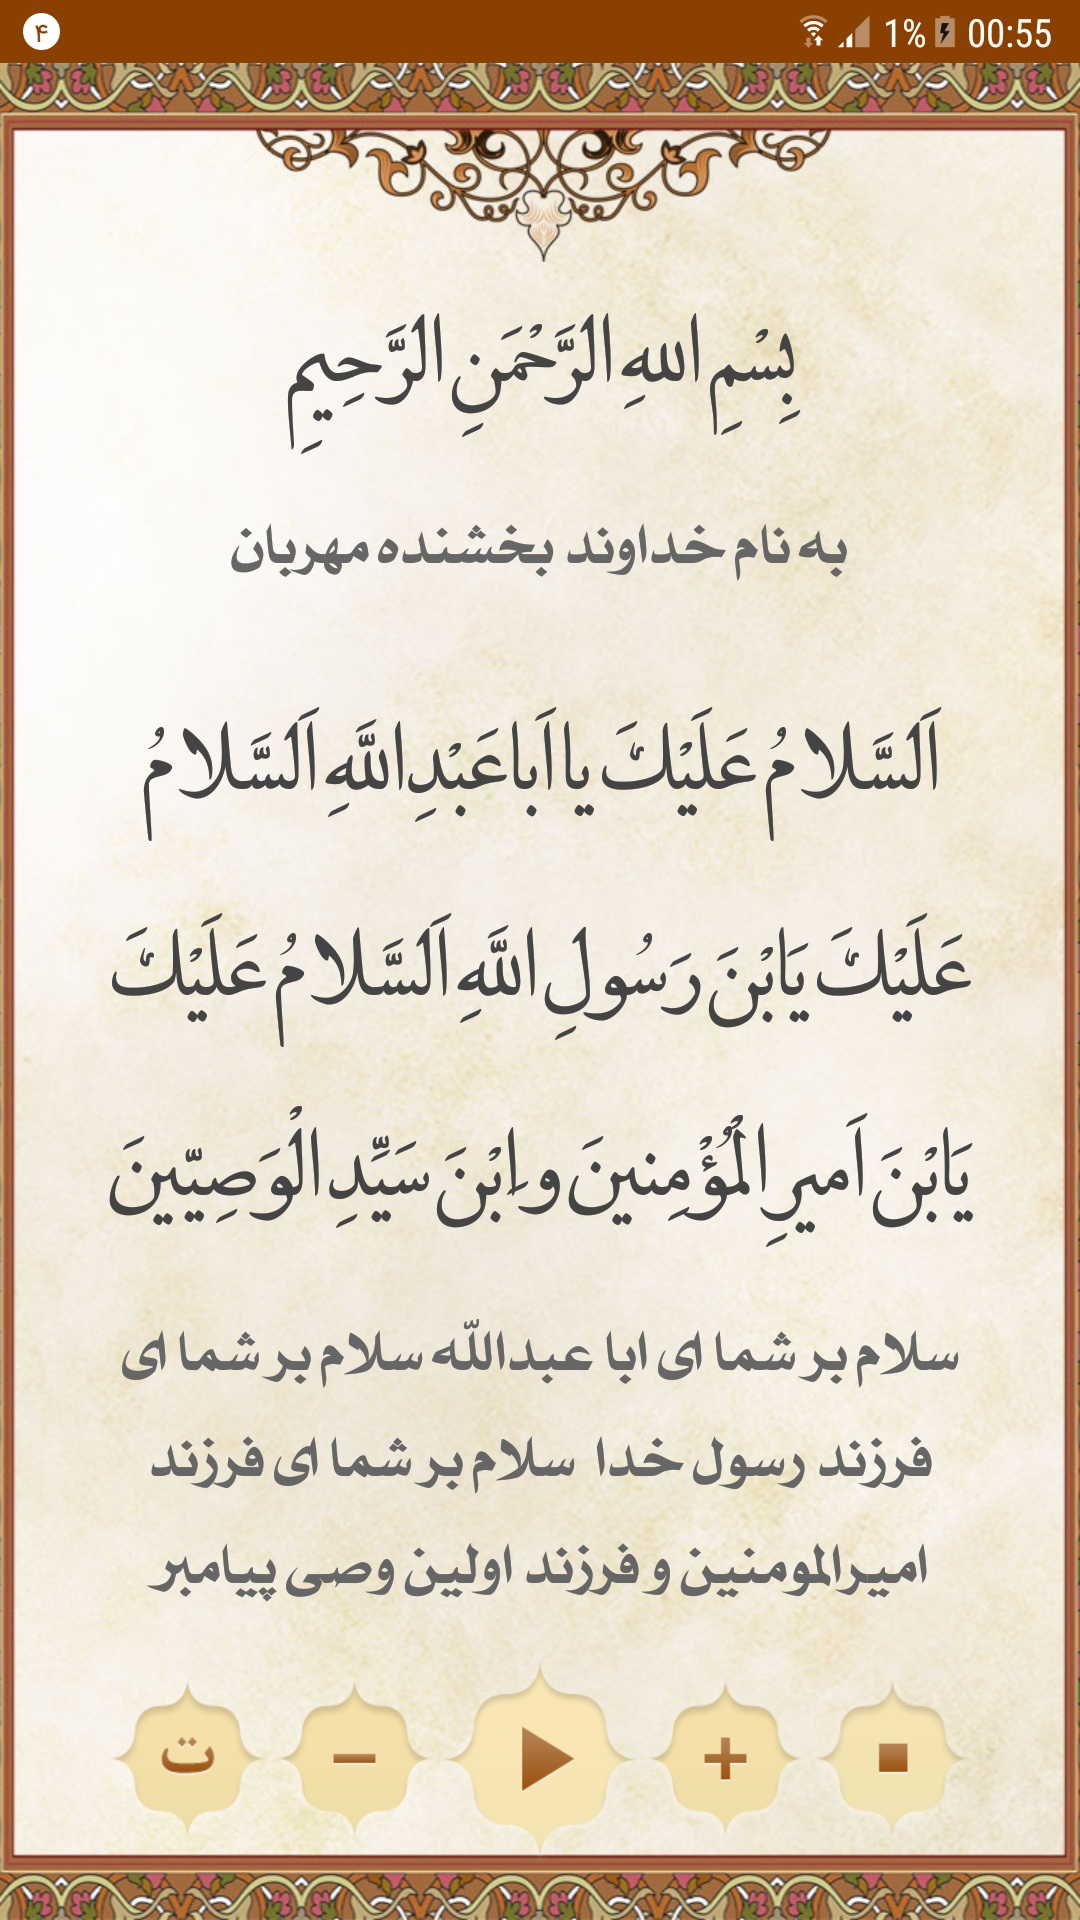 ۴ 1% 00:55
بِسْمِ اللهِ الرَّحْمَنِ الرَّحِيمِ
به نام خداوند بخشنده مهربان
اَلسَّلامُ عَلَيْكَ يا اَبا عَبْدِ اللَّهِ اَلسَّلامُ
عَلَيْكَ يَابْنَ رَسُولِ اللَّهِ اَلسَّلامُ عَلَيْكَ
يَابْنَ اَميرِ الْمُؤْمِنينَ و اِبْنَ سَيِّدِ الْوَصِيّينَ
سلام بر شما ای ابا عبداللّه سلام بر شما ای
فرزند رسول خدا سلام بر شما ای فرزند
امیرالمومنین و فرزند اولین وصی پیامبر
ت − +